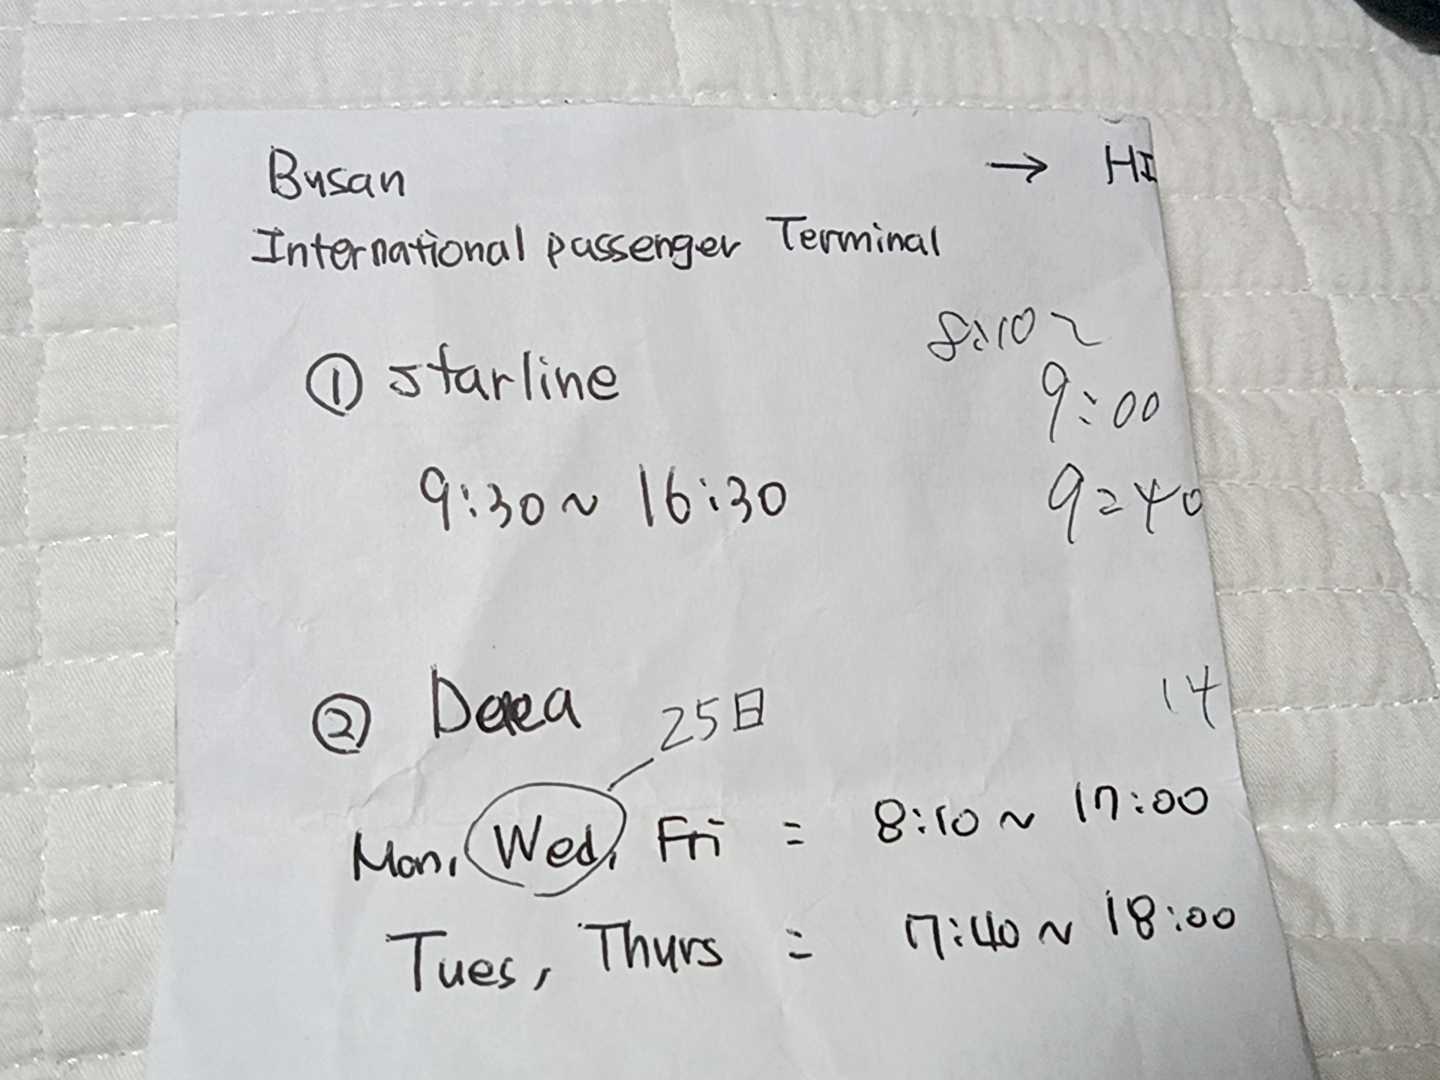 Busan → HI
International passenger Terminal
8:10~
① starline
9:00
9:30 ~ 16:30
9:40
② Daea
25日
14
Mon, Wed, Fri = 8:10 ~ 17:00
Tues, Thurs = 7:40 ~ 18:00